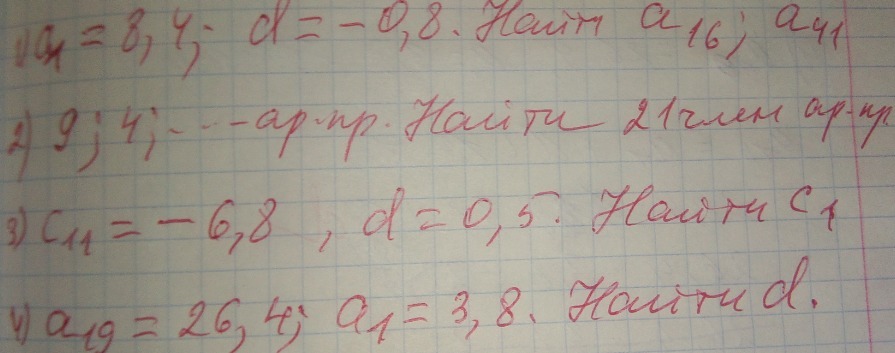 1) a₁ = 8,4; d = -0,8. Найти a₁₆; a₄₁
2) 9; 4; ... ар. пр. Найти 21 член ар. пр
3) c₁₁ = -6,8, d = 0,5. Найти c₁
4) a₁₉ = 26,4; a₁ = 3,8. Найти d.